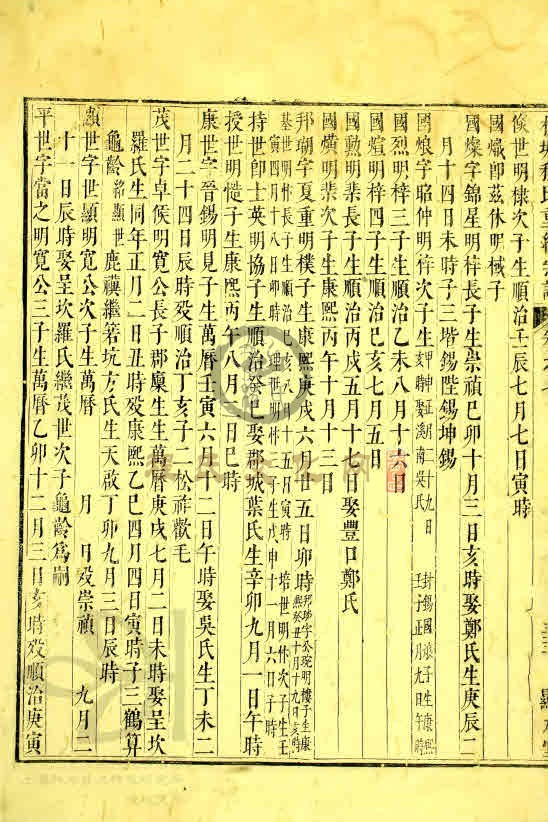 俟世明棣次子生順治壬辰七月七日寅時
國熾卽茲休明棫子
國燦字錦星明梓長子生崇禎己卯十月三日亥時娶鄭氏生庚辰二
月十四日未時子三堦錫陛錫坤錫
國烺字昭仲明梓次子生
國烈明梓三子生順治乙未八月十六日
國煊明梓四子生順治己亥七月五日
國勳明榘長子生順治丙戌五月十七日娶豐口鄭氏
國爌明榘次子生康熙丙午十月十三日
邦瑚字夏重明樸子生康熙庚戌六月廿五日卯時
持世卽士英明協子生順治癸巳娶郡城葉氏生辛卯九月一日午時
授世明慥子生康熙丙午八月 日巳時
康世字晉錫明見子生萬曆壬寅六月十二日午時娶吳氏生丁未二
月二十四日辰時歿順治丁亥子二松祚歡毛
茂世字卓候明寬公長子郡廩生生萬曆庚戌七月二日未時娶呈坎
羅氏生同年正月二日丑時歿康熙乙巳四月四日寅時子三鶴算
龜齡紹顯世鹿禩繼箬坑方氏生天啟丁卯九月三日辰時
顯世字世顯明寬公次子生萬曆 月 日歿崇禎 九月二
十一日辰時娶呈坎羅氏繼茂世次子龜齡爲嗣
平世字當之明寬公三子生萬曆乙卯十二月三日亥時歿順治庚寅